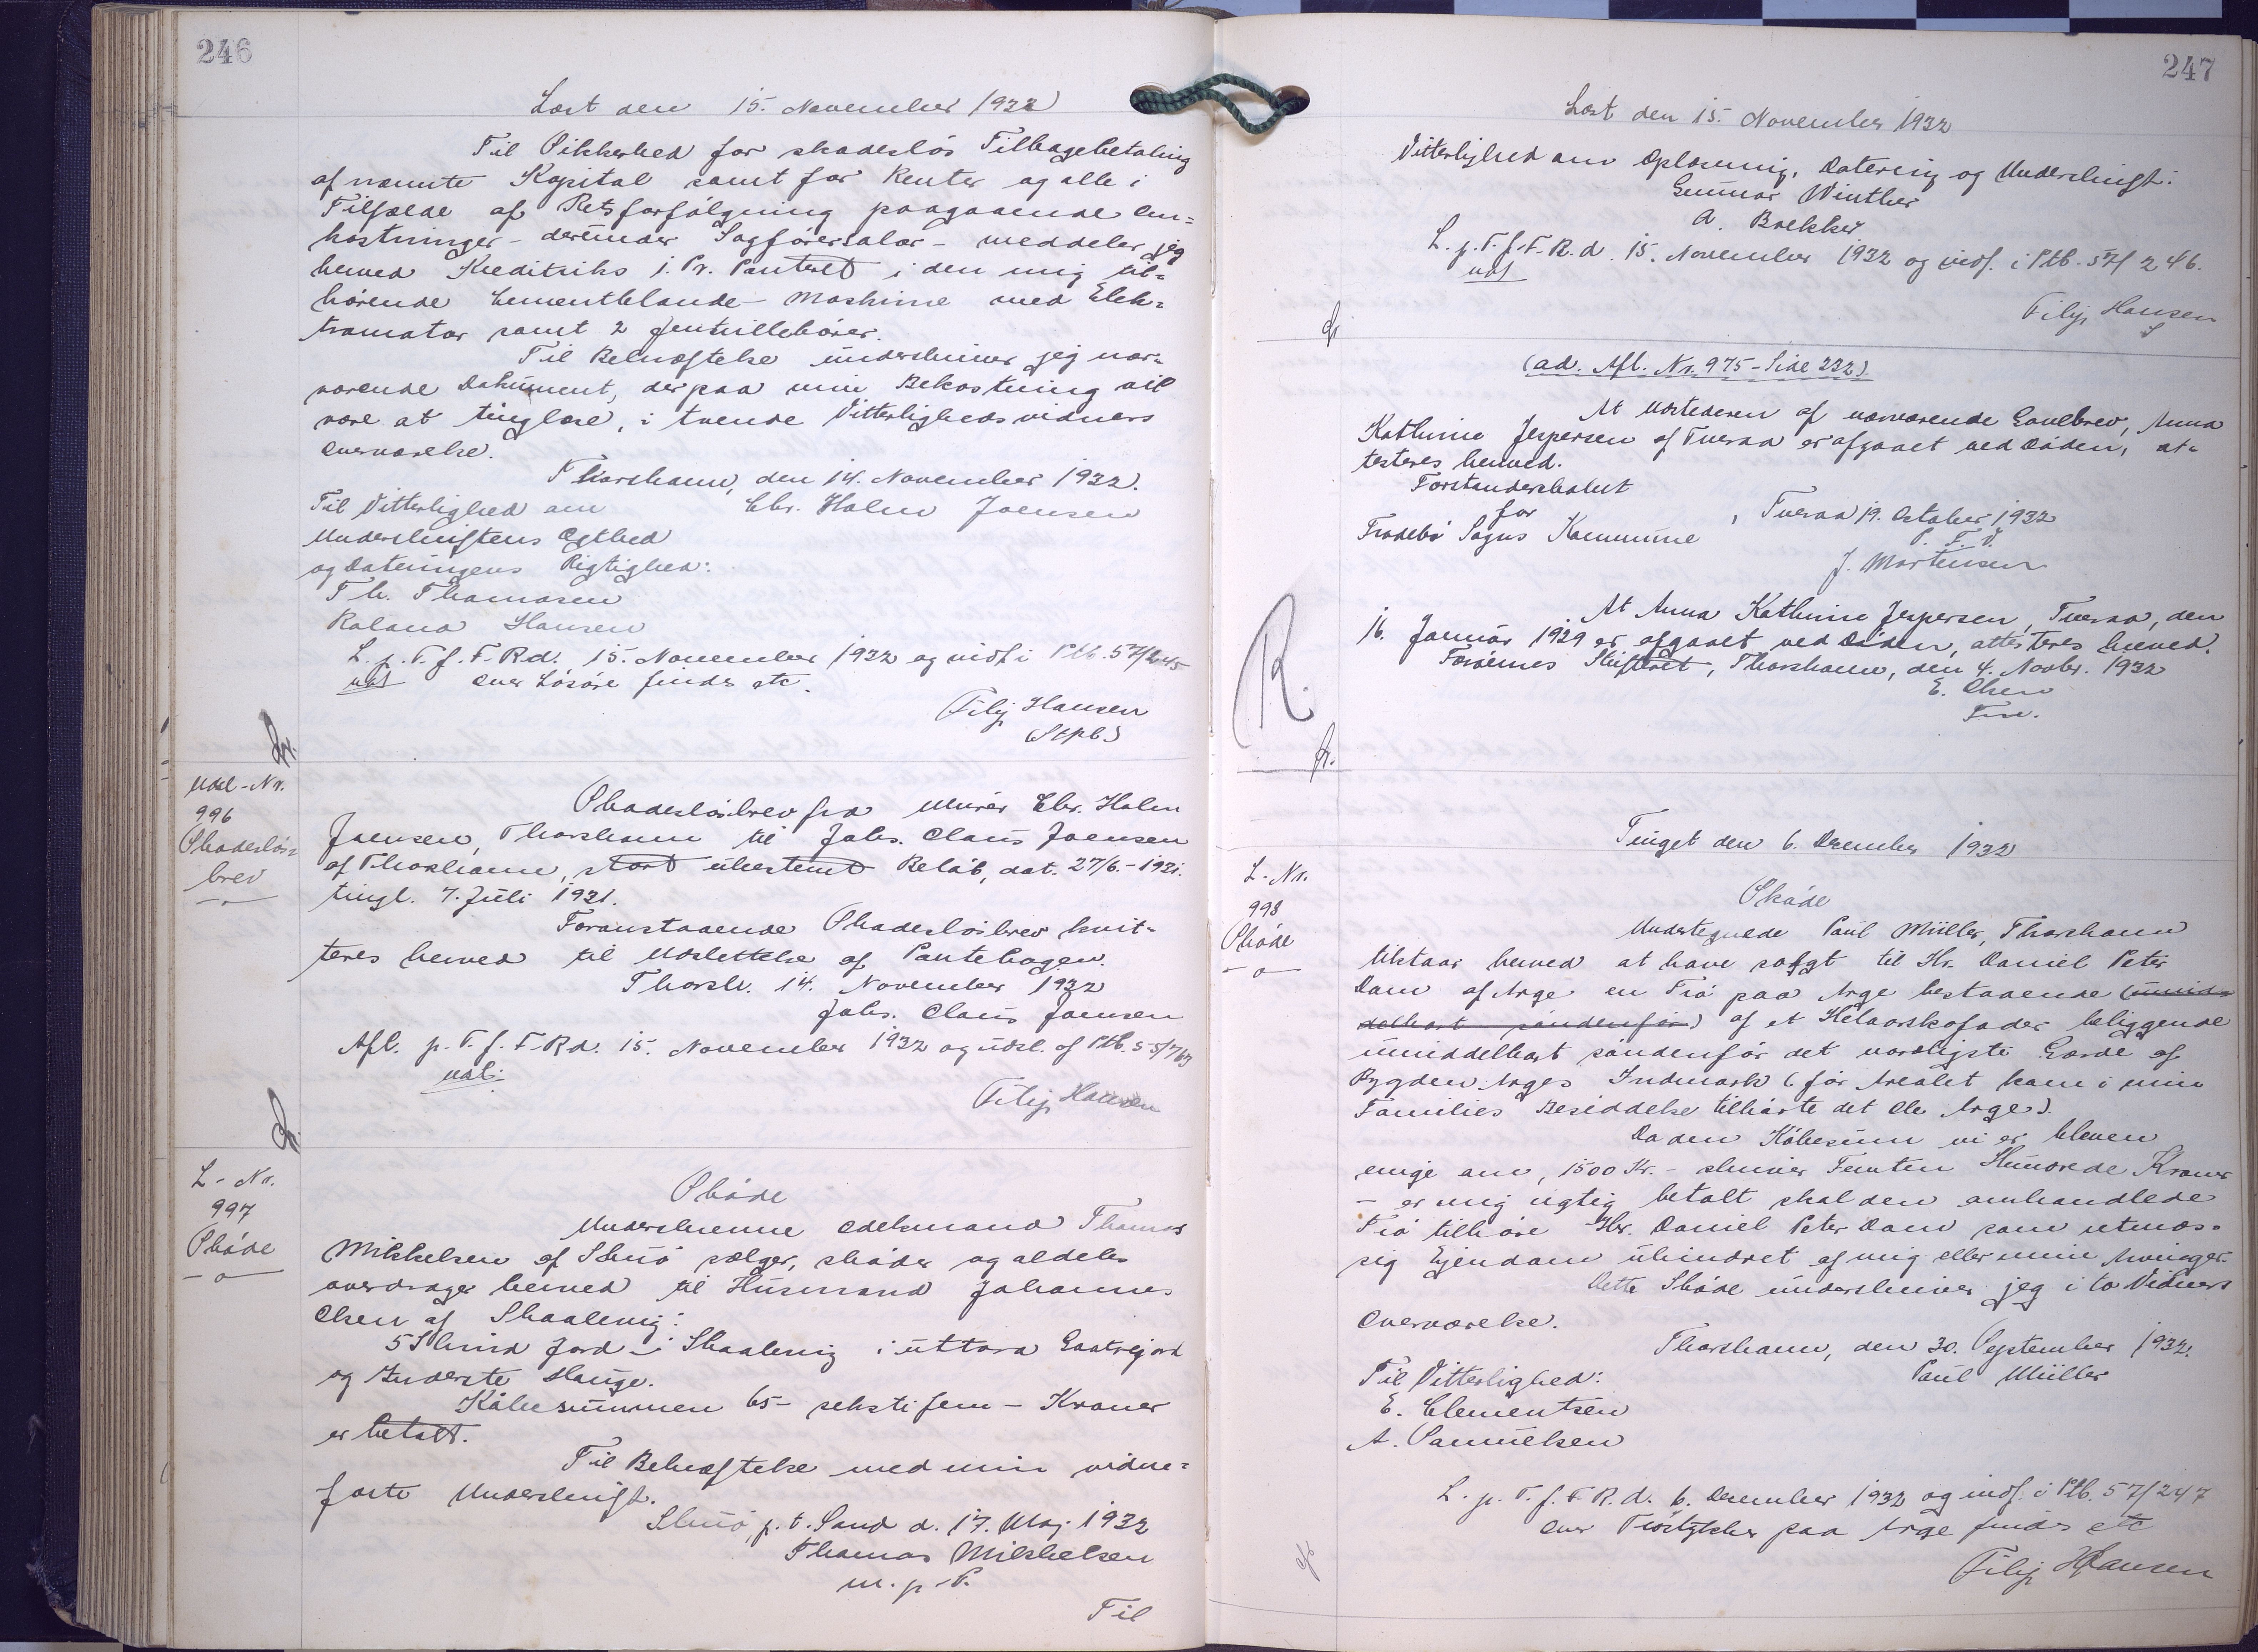 246
Læst den 15. November 1932
Til Sikkerhed for skadesløs Tilbagebetaling
af nævnte Kapital samt for Renter og alle i
Tilfælde af Retsforfølgning paagaaende Om=
kostninger - derunder Sagførersalær - meddeler jeg
herved Kreditriks 1. Pr. Panteret i den mig til=
hørende Cementblande - Maskine med Elek=
tromotor samt 2
Til Bekræftelse underskriver jeg nær=
værende Dokument, der paa min Bekostning vil
være at tinglæse, i tvende Vitterlighedsvidners
Overværelse.
Thorshavn, den 14. November 1932.
Til Vitterlighed om Chr. Holm Joensen
Underskriftens Ægthed
og Dateringens Rigtighed:
Th. Thomasen
Roland Hansen
L. p. T. f. F. R. d. 15. November 1932 og indf. i Ptb. 57/245
udl Over Løsøre findes etc.
Filip Hansen
Udsl-Nr.
996
Skadesløs=
brev
Skadesløsbrev fra Murer Chr. Holm
Joensen, Thorshavn til Johs. Claus Joensen
af Thorshavn, stort ubestemt Beløb, dat. 27/6.-1921.
tingl. 7. Juli 1921.
Foranstaaende Skadesløsbrev kvit=
teres herved til Udslettelse af Pantebogen.
Thorsh. 14. November 1932
Johs. Claus Joensen
Afl. p. T. f. F. R. d. 15. November 1932 og udsl. af Ptb. 55/763
udl.
Filip Hansen
L - Nr.
997
Skøde
Skøde
Underskrevne Odelsmand Thomas
Mikkelsen af Skuø sælger, skøder og aldeles
overdrager herved til Husmand Johannes
Olsen af Skaalevig:
5 Skind Jord i Skaalevig i uttara
og Inderste Hauge.
Købesummen 65 - sekstifem - Kroner
er betalt.
Til Bekræftelse med min vidne=
faste Underskrift.
Skuø, p. t. Sand d. 17. Maj 1932
Thomas Mikkelsen
m. p. P.
Til
247
Læst den 15. November 1932
Vitterlighed om Oplæsning, Datering og Underskrift:
Gunnar Winther
A. Brekker
L. p. T. f. F. R. d. 15. November 1932 og indf. i Ptb. 57/246.
udl
Filip Hansen
(ad. Afl. Nr. 975 - Side 232).
At Udstederen af nærværende Gavebrev, Anna
Kathrine Jespersen af Tveraa er afgaaet ved Døden, at=
testeres herved.
Forstanderskabet
for , Tveraa 19. October 1932
Frodebø Sogns Kommune P. F. V.
J. Mortensen
At Anna Kathrine Jespersen, Tveraa, den
16. Januar 1929 er afgaaet ved Døden, attesteres herved.
R. Færøernes Skifteret, Thorshavn, den 4. Novbr. 1932
E. Olsen
Fm.
Tinget den 6. December 1932
L - Nr.
998
Skøde
Skøde
Undertegnede Paul Müller, Thorshavn
tilstaar herved at have solgt til Hr. Daniel Peter
Dam af Arge en Trø paa Arge bestaaende (umid=
delbart søndenfor) af et Helaarskofoder beliggende
umiddelbart søndenfor det nordligste Gærde af
Bygden Arges Indmark (før Arealet kom i min
Families Besiddelse tilhørte det Ole Arge).
Da den Købesum vi er bleven
enige om, 1500 Kr. - skriver Femten Hundrede Kroner
- er mig rigtig betalt skal den omhandlede
Trø tilhøre Hr. Daniel Peter Dam som retmæs=
sig Ejendom uhindret af mig eller mine Arvinger.
Dette Skøde underskriver jeg i to Vidners
Overværelse.
Thorshavn, den 30. September 1932.
Til Vitterlighed: Paul Müller
E. Clementsen
A. Samuelsen
L. p. T. f. F. R. d. 6. December 1932 og indf. i Ptb. 57/247
Over Trøstykker paa Arge findes etc
Filip Hansen